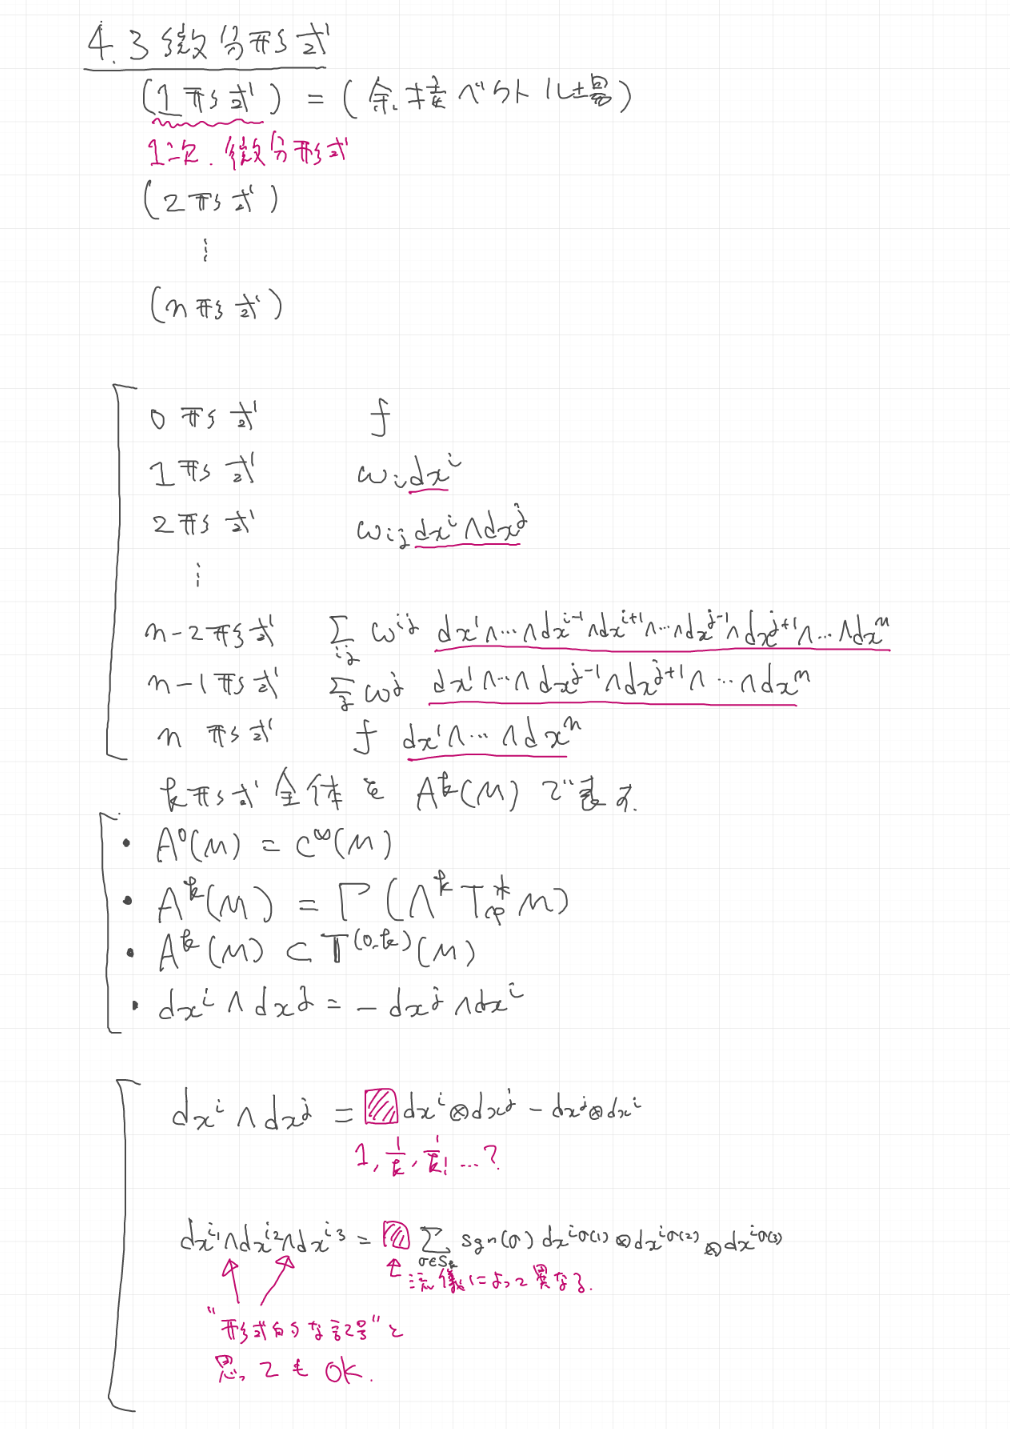 4.3 微分形式
(1形式) = (余接ベクトル場)
1次 微分形式
(2形式)
⋮
(n形式)
0形式 f
1形式 ω_i dx^i
2形式 ω_{ij} dx^i ∧ dx^j
⋮
n-2形式 Σ_{ij} ω^{ij} dx^1 ∧ ⋯ ∧ dx^{i-1} ∧ dx^{i+1} ∧ ⋯ ∧ dx^{j-1} ∧ dx^{j+1} ∧ ⋯ ∧ dx^n
n-1形式 Σ_j ω^j dx^1 ∧ ⋯ ∧ dx^{j-1} ∧ dx^{j+1} ∧ ⋯ ∧ dx^n
n 形式 f dx^1 ∧ ⋯ ∧ dx^n
k形式全体を A^k(M) で表す.
・ A^0(M) = C^∞(M)
・ A^k(M) = Γ(Λ^k T_p^* M)
・ A^k(M) ⊂ T^{(0,k)}(M)
・ dx^i ∧ dx^j = - dx^j ∧ dx^i
dx^i ∧ dx^j = dx^i ⊗ dx^j - dx^j ⊗ dx^i
1, 1/k, 1/k! …?
dx^{i1} ∧ dx^{i2} ∧ dx^{i3} = Σ_{σ∈S_k} sgn(σ) dx^{iσ(1)} ⊗ dx^{iσ(2)} ⊗ dx^{iσ(3)}
流儀によって異なる.
"形式的な記号"と
思ってもOK.